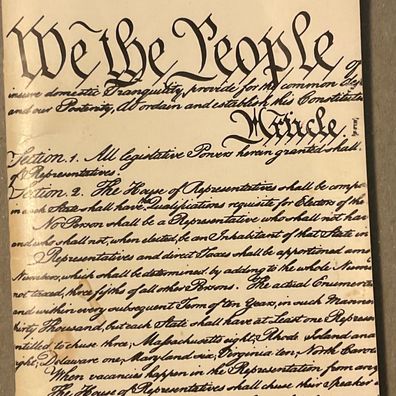 We the People of
insure domestic Tranquility, provide for the common
and our Posterity, do ordain and establish this Constitut
Article
Section. 1. All legislative Powers herein granted shall
of Representatives.
Section. 2. The House of Representatives shall be comp
in each State shall have the Qualifications requisite for Electors of the
No Person shall be a Representative who shall not hav
and who shall not, when elected, be an Inhabitant of that State in
Representatives and direct Taxes shall be apportioned amo
Numbers, which shall be determined by adding to the whole Num
not taxed, three fifths of all other Persons. The actual Enumer
and within every subsequent Term of ten Years, in such Manner
thirty Thousand, but each State shall have at Least one Represen
entitled to chuse three, Massachusetts eight, Rhode Island and
eight, Delaware one, Maryland six, Virginia ten, North Caro
When vacancies happen in the Representation from any
The House of Representatives shall chuse their Speaker